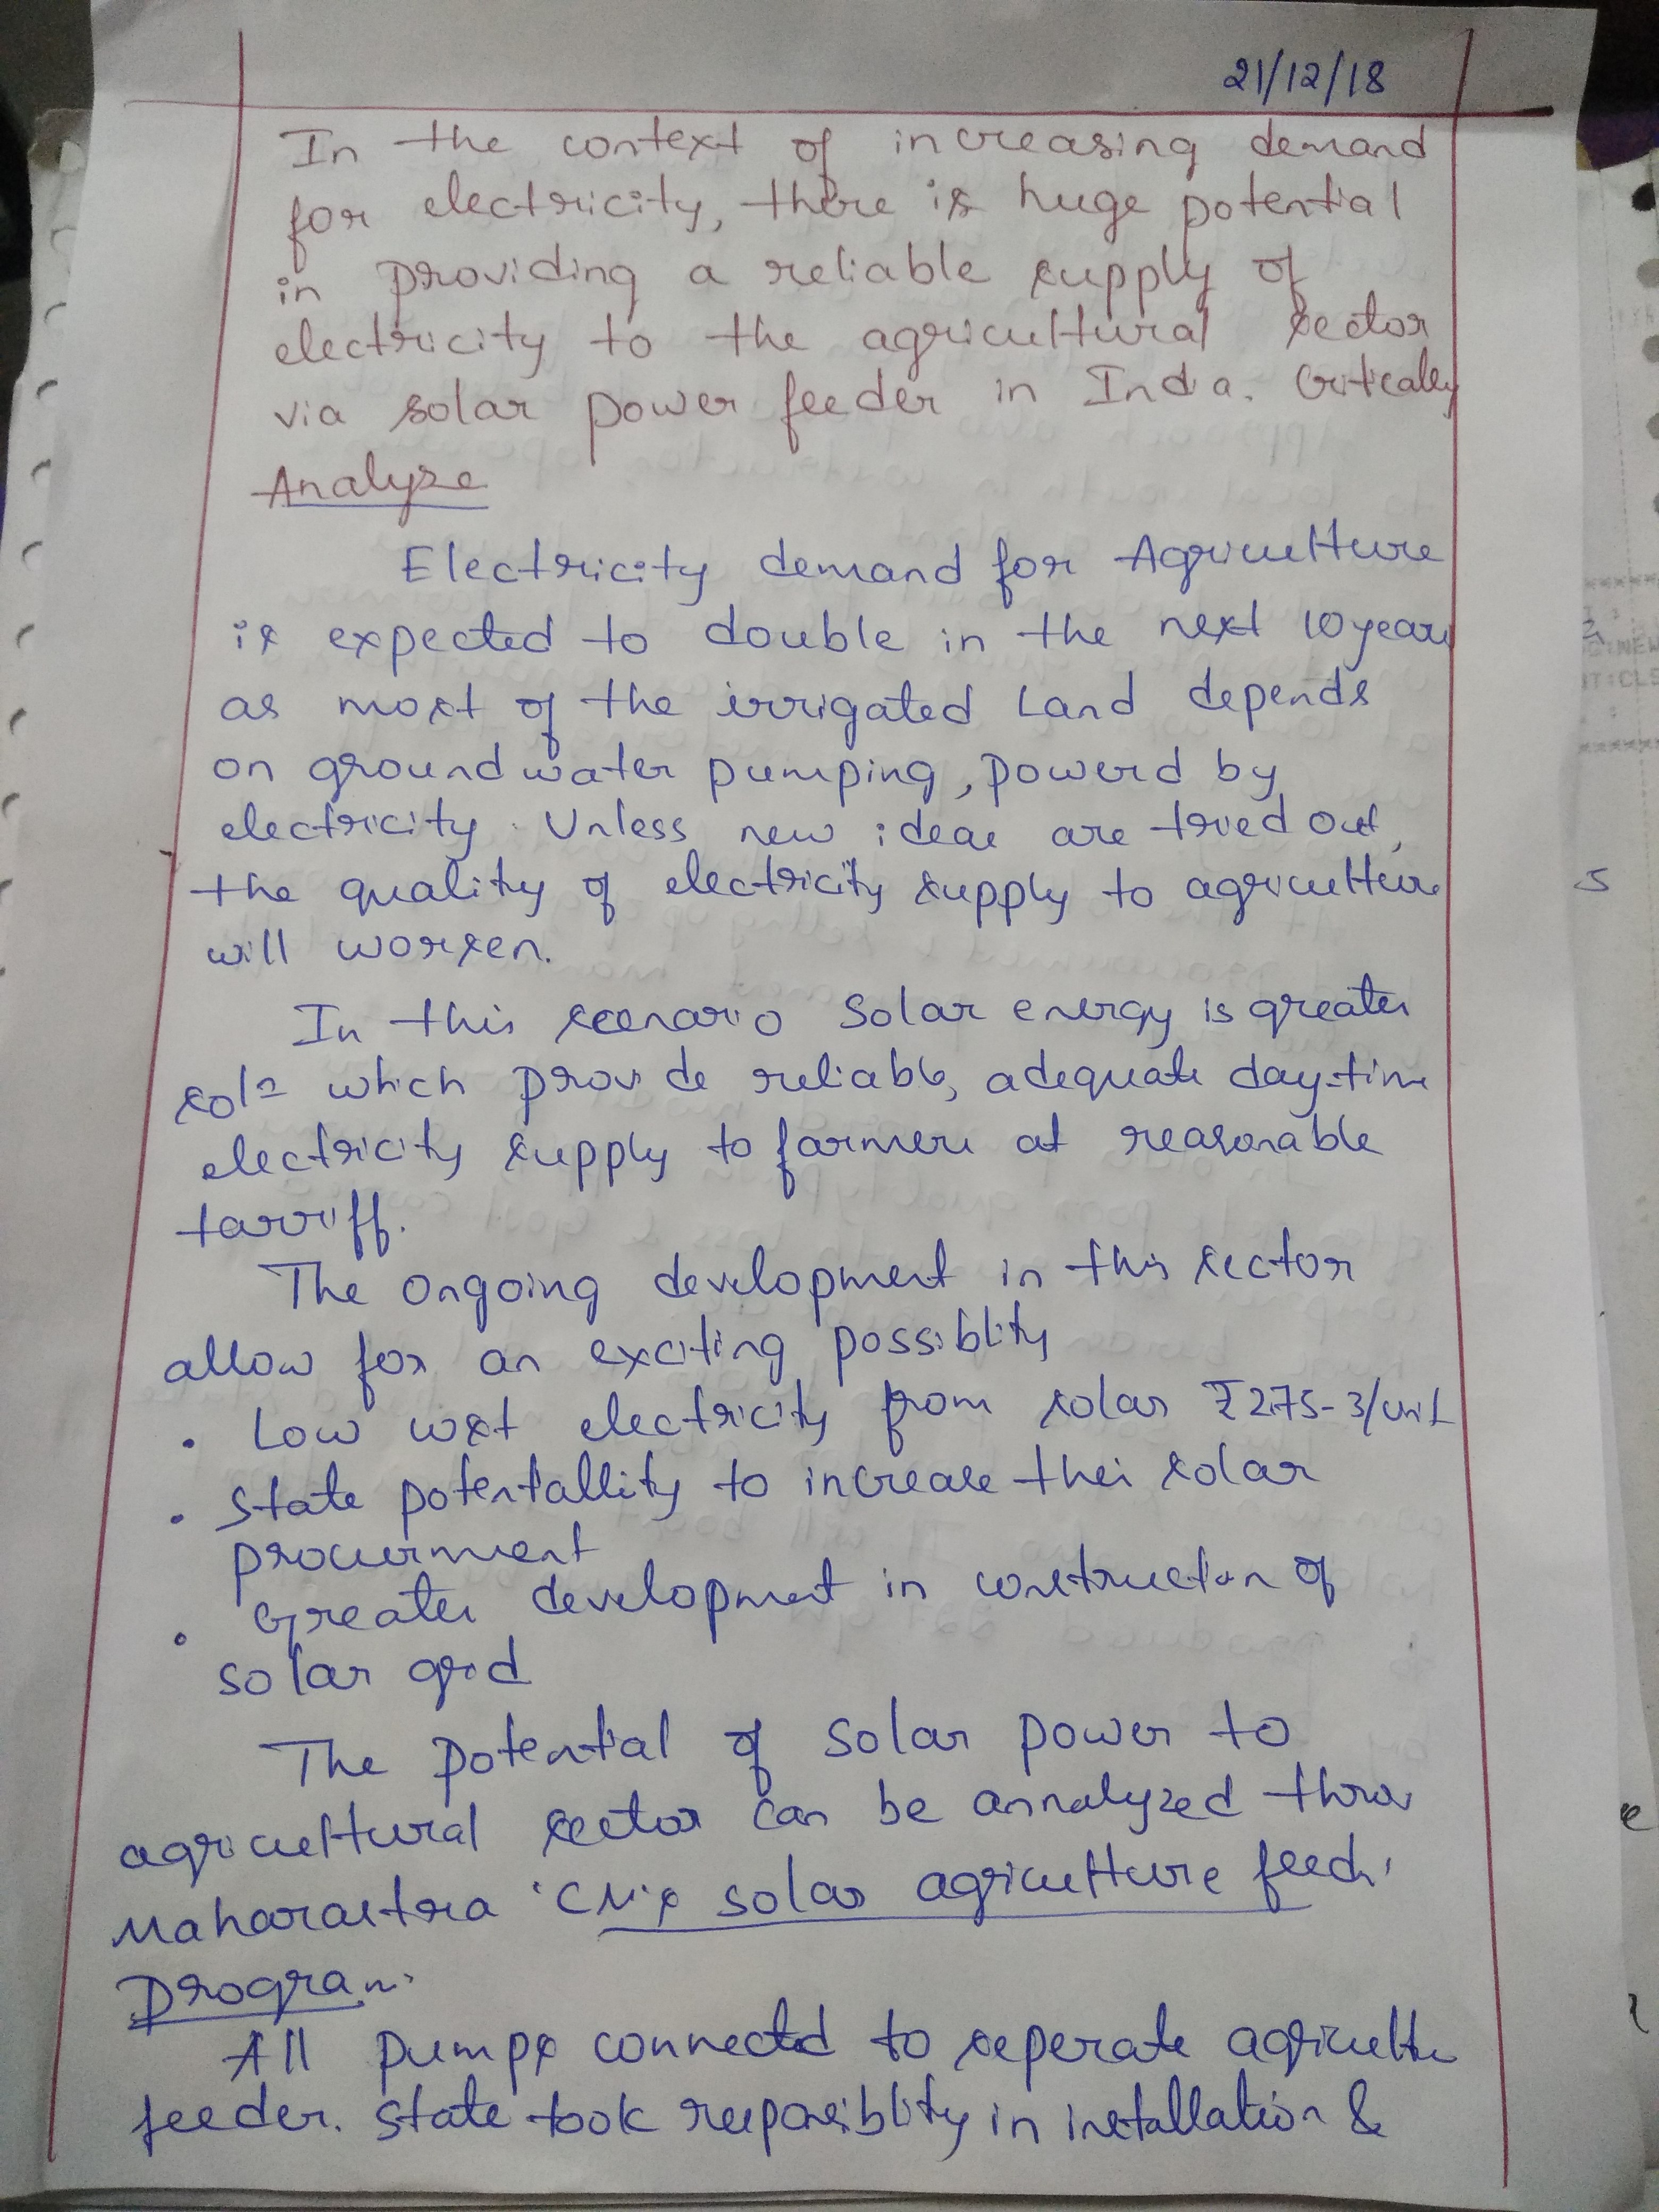 21/12/18
In the context of increasing demand
for electricity, there is huge potential
in providing a reliable supply of
electricity to the agricultural sector
via solar power feeder in India. Critically
Analyze
Electricity demand for Agriculture
is expected to double in the next 10 years
as most of the irrigated Land depends
on groundwater pumping, powerd by
electricity. Unless new ideas are tried out,
the quality of electricity supply to agriculture
will worsen.
In this scenario Solar energy is greater
soln which provide reliable, adequate day-time
electricity supply to farmers at reasonable
tarriff.
The Ongoing development in this sector
allow for an exciting possiblity
• Low cost electricity from solar ₹2.75-3/unit
• State potentallity to increase their solar
procurment
• Greater development in construction of
solar grid
The potential of solar power to
agricultural sector can be annalyzed throu
Maharastra 'CM's solar agriculture feeder
Program.
All pumps connected to seperate agriculture
feeder. State took responsiblity in installation &